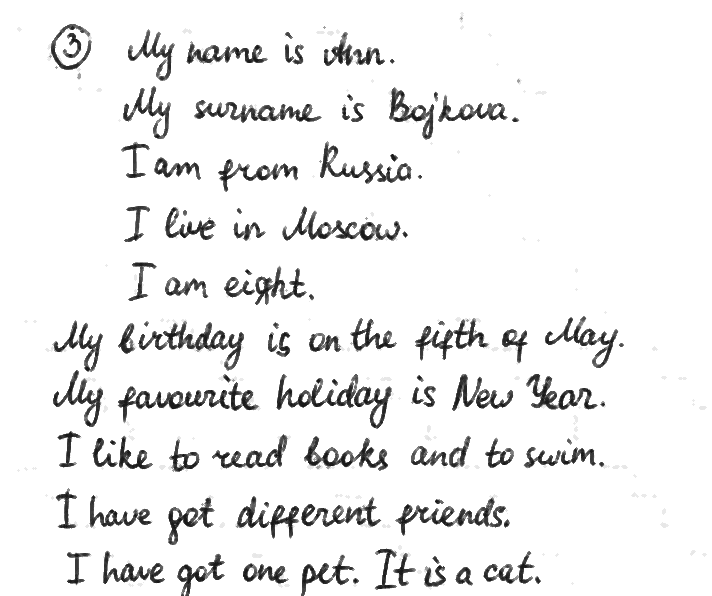 ③ My name is Ann.
My surname is Bojkova.
I am from Russia.
I live in Moscow.
I am eight.
My birthday is on the fifth of May.
My favourite holiday is New Year.
I like to read books and to swim.
I have got different friends.
I have got one pet. It is a cat.